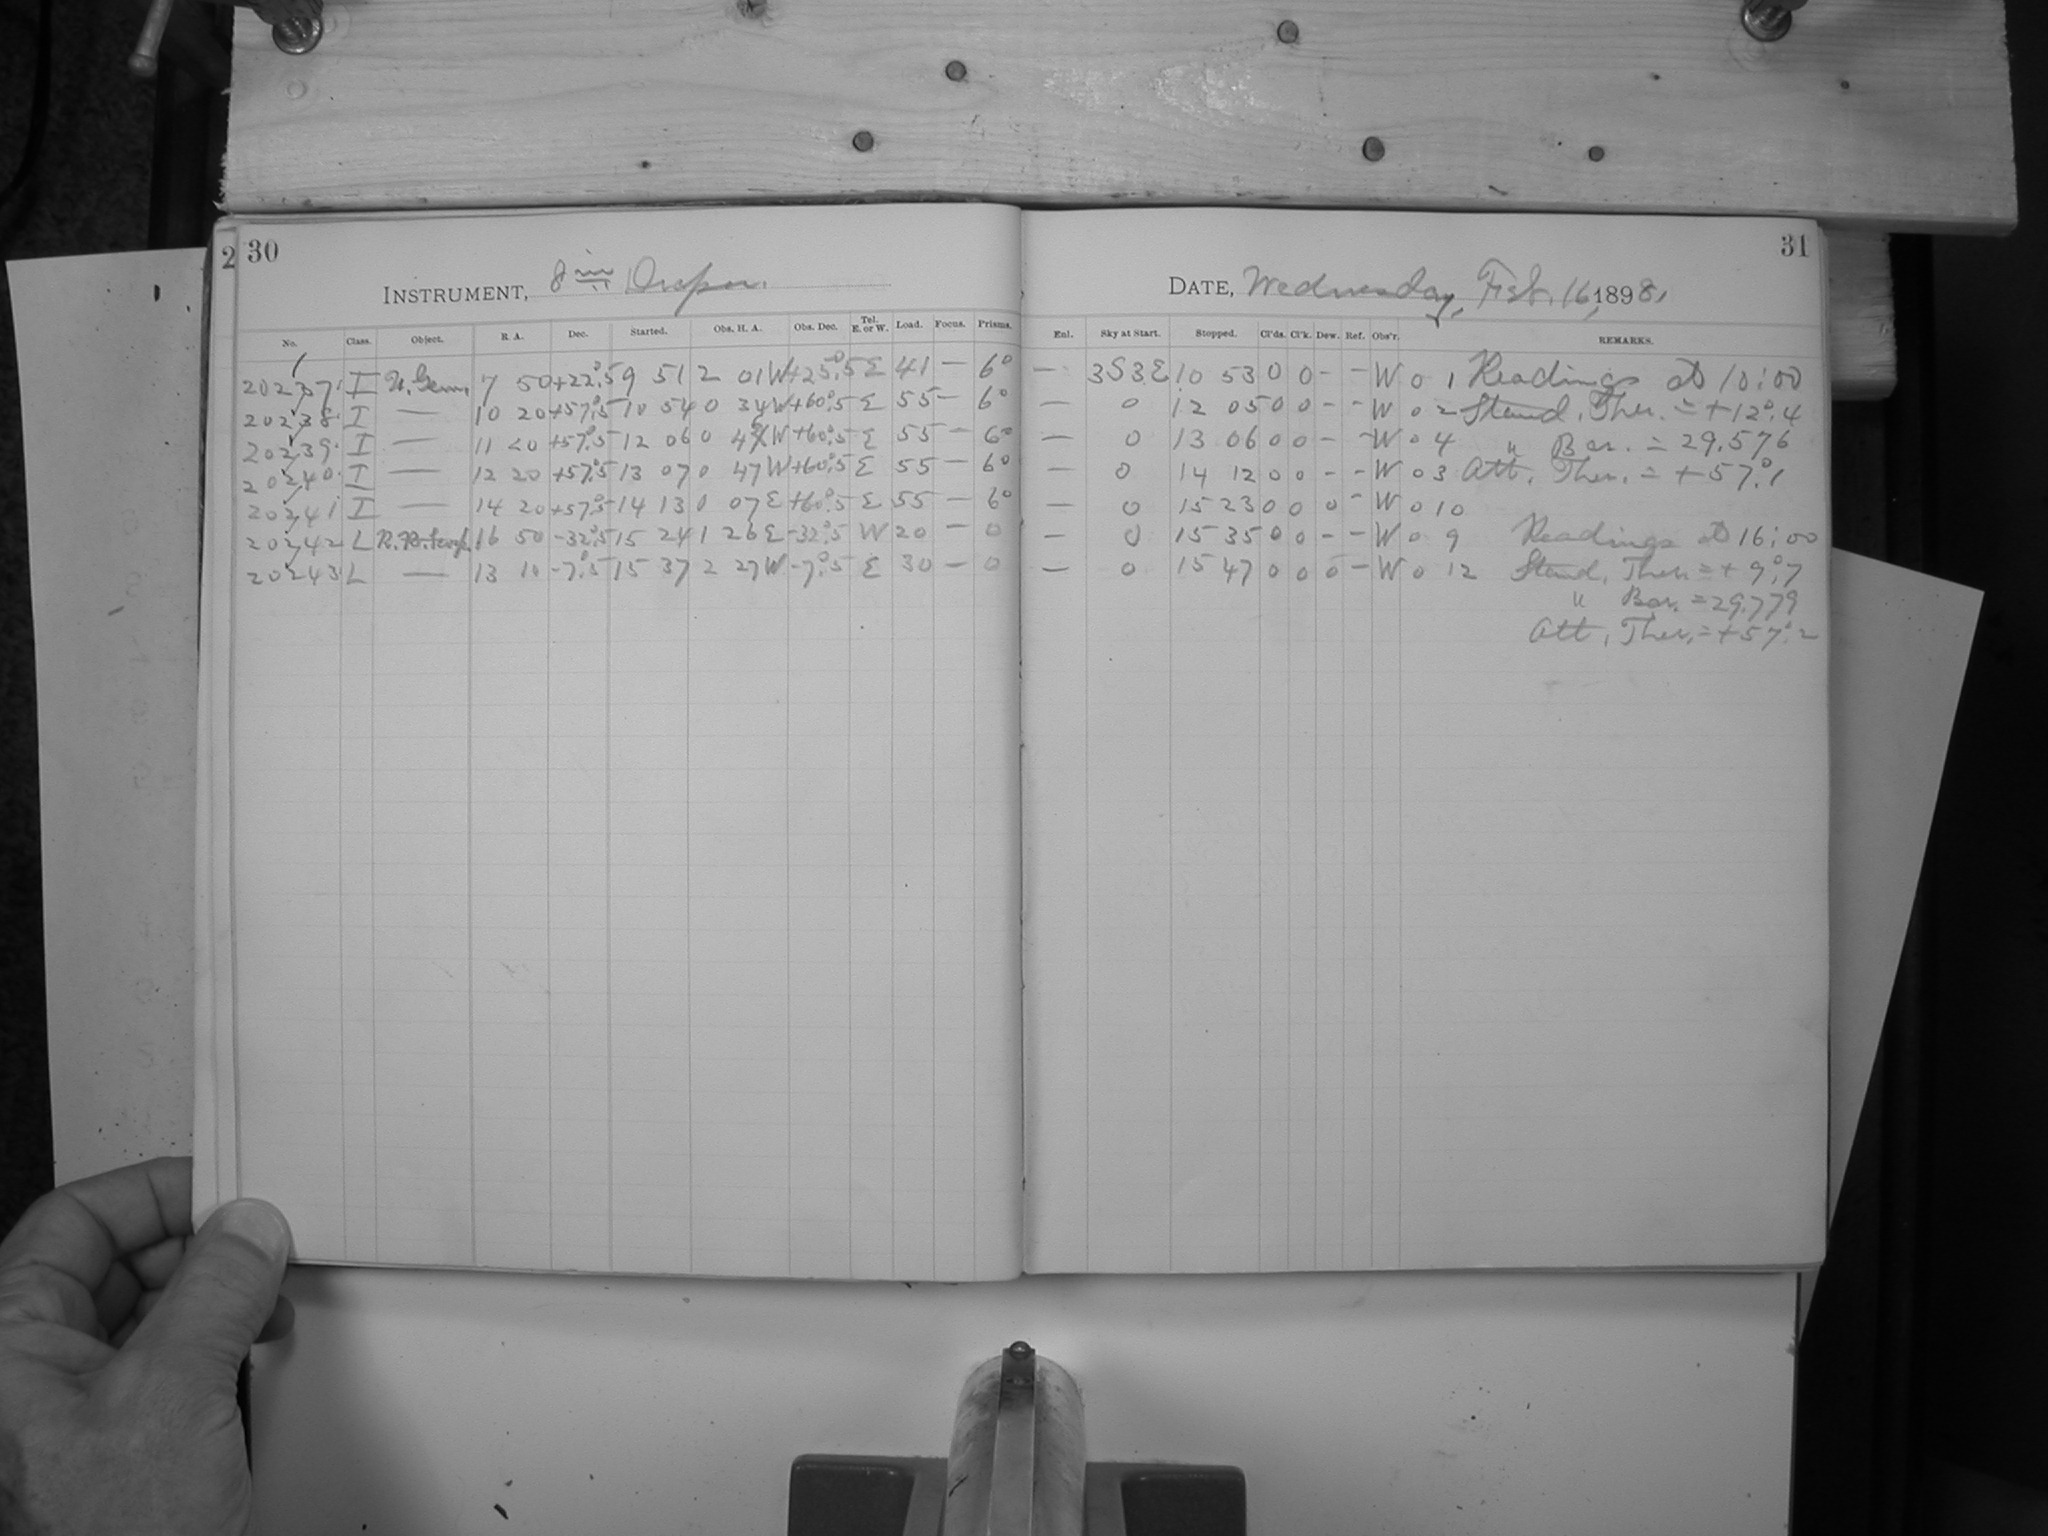 2 30
INSTRUMENT, 8 in Draper.
No. Class. Object. R. A. Dec. Started. Obs. H. A. Obs. Dec. Tel. E. or W. Load. Focus. Prisms.
20237 I U. Gem. 7 50 +22°.5 9 51 2 01 W +25°.5 E 41 — 6°
20238 I — 10 20 +57°.5 10 54 0 34 W +60°.5 E 55 — 6°
20239 I — 11 20 +57°.5 12 06 0 4 W +60°.5 E 55 — 6°
20240 I — 12 20 +57°.5 13 07 0 47 W +60°.5 E 55 — 6°
20241 I — 14 20 +57°.5 14 13 0 07 E +60°.5 E 55 — 6°
20242 L 16 50 -32°.5 15 24 1 26 E -32°.5 W 20 — 0
20243 L — 13 10 -7°.5 15 37 2 27 W -7°.5 E 30 — 0
31
DATE, Wednesday, Feb. 16, 1898.
Enl. Sky at Start. Stopped. Cl'ds. Cl'k. Dew. Ref. Obs'r. REMARKS.
— 3S3E 10 53 0 0 - - W 0 1 Readings at 10:00
— 0 12 05 0 0 - - W 0 2 Stand. Ther. = +12°.4
— 0 13 06 0 0 - - W 0 4 " Bar. = 29.576
— 0 14 12 0 0 - - W 0 3 Att. Ther. = +57°.1
— 0 15 23 0 0 0 - W 0 10
— 0 15 35 0 0 - - W 0 9 Readings at 16:00
— 0 15 47 0 0 0 - W 0 12 Stand. Ther. = +9°.7
" Bar. = 29.779
Att. Ther. = +57°.2